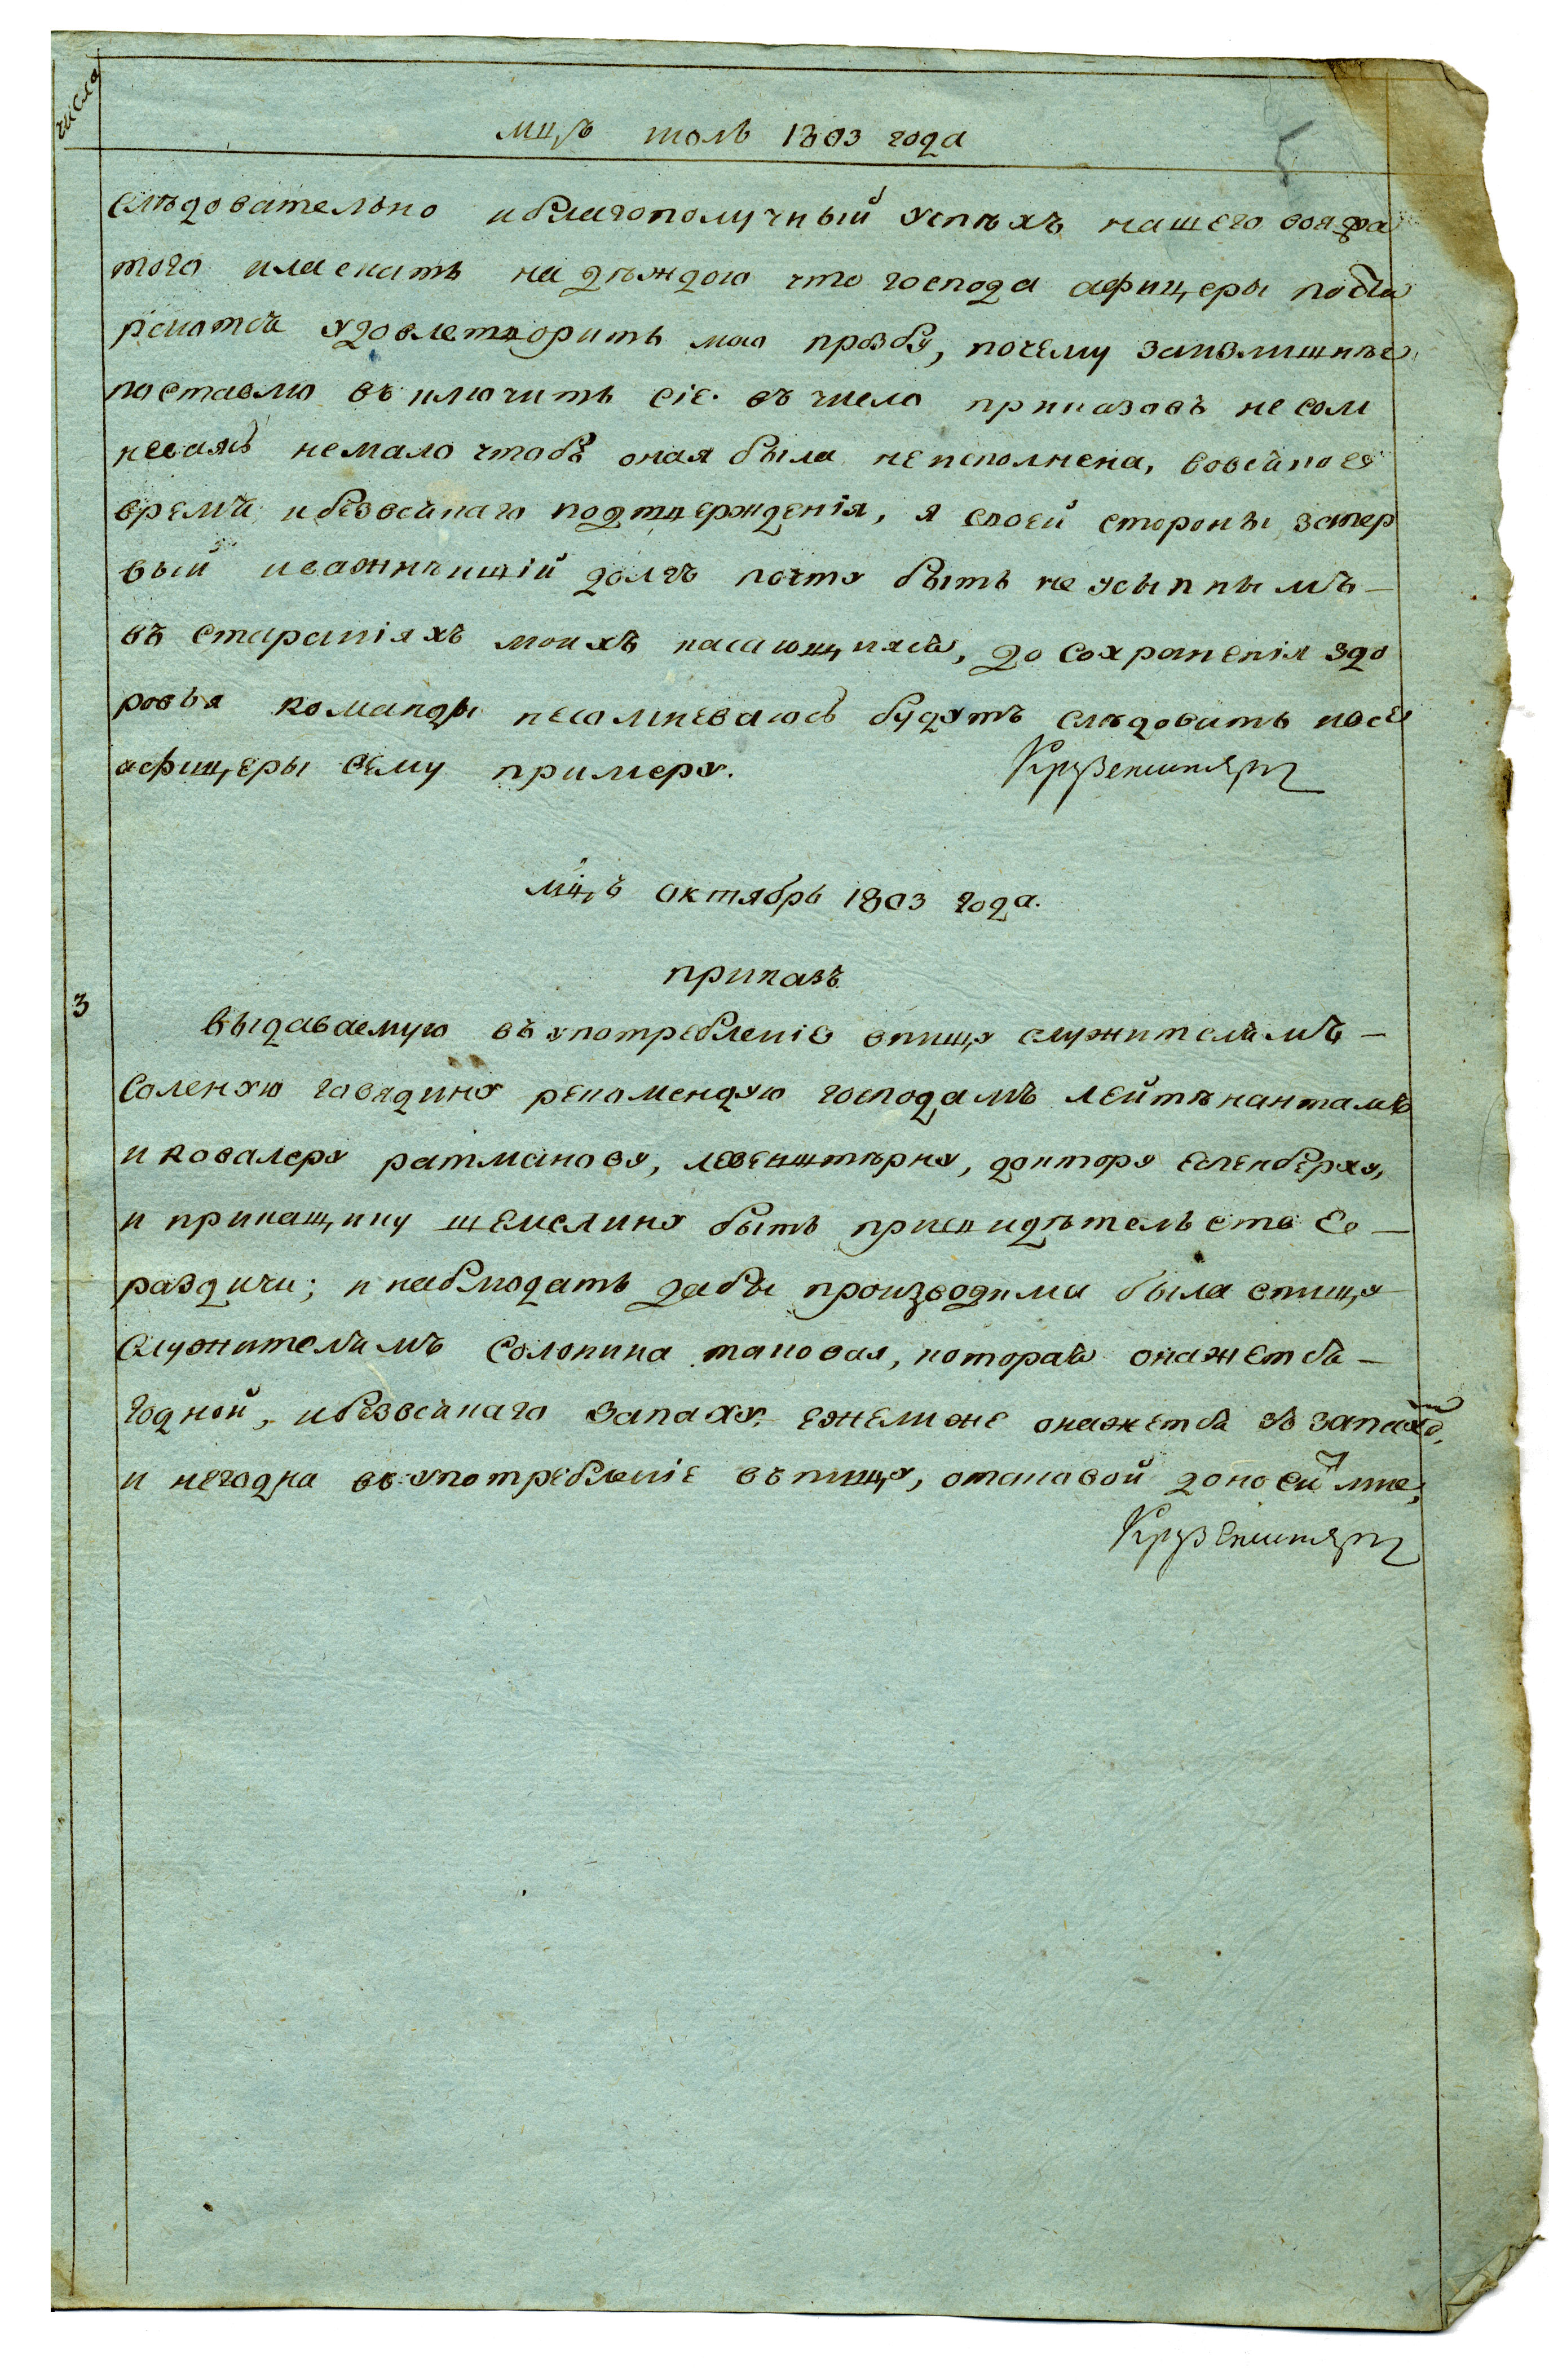 числа
мцъ июль 1803 года
5
следовательно иблагополучный успѣхъ нашего вояжа
того иласкать надѣждою что господа афицеры поста
раются удовлетворить мою прозбу, почему заизлишнѣе
поставлю въключить сіе въ число приказовъ несом
неваясь немало чтобъ оная была неисполнена, вовсякое
время ибезвсякаго подтвержденія, я своей стороны запер
вый иважнѣищій долгъ почту быть неусыпнымъ —
въ стараніяхъ моихъ касающихся, до сохраненія здо
ровья команды несомневаюсь будутъ следовать ивсе
афицеры сему примеру.
Крузенштерн
мцъ октябрь 1803 года.
приказъ
3
Выдаваемую въупотребленіе впищу служителямъ —
Соленую говядину рекомендую господамъ лейтѣнантамъ
и ковалеру ратманову, левенштѣрну, доктору еспенберху,
и прикащику шемелину быть присвидѣтельстве ее —
раздачи; и наблюдать дабы производима была впищу
служителямъ солонина таковая, которая окажетса —
годной, ибезвсякаго запаху. ежелиже окажетса зъ запахом,
и негодна въупотребленіе въпищу, отаковой доносить мне;
Крузенштерн